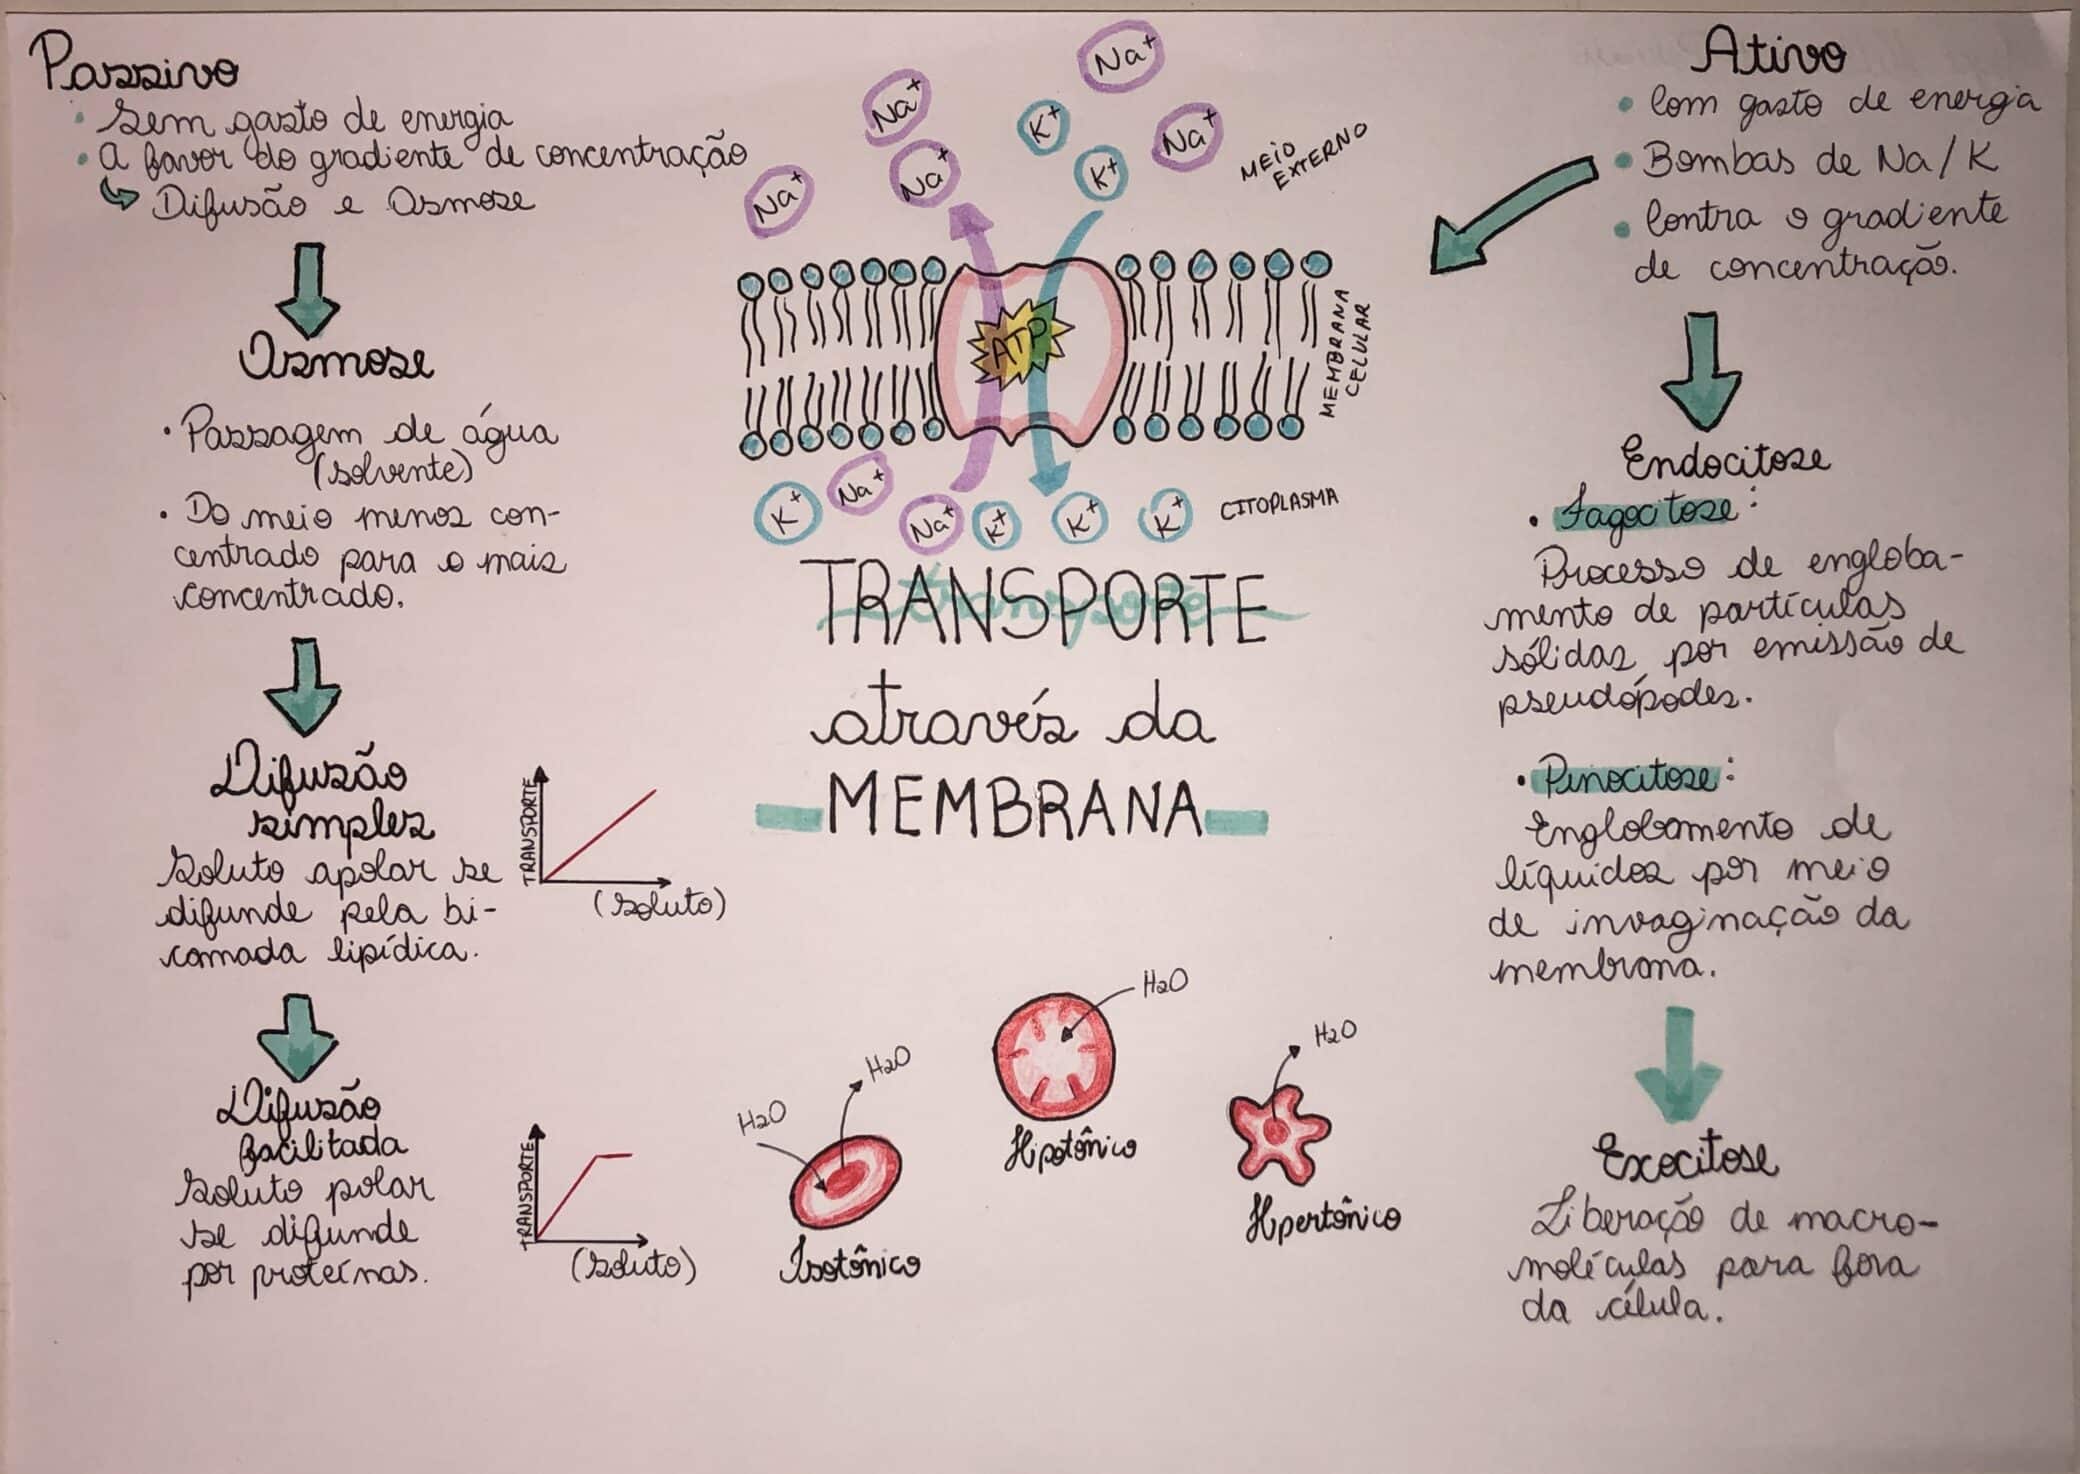 Passivo
• Sem gasto de energia
• A favor do gradiente de concentração
Difusão e Osmose
Osmose
• Passagem de água
(solvente)
• Do meio menos con-
centrado para o mais
concentrado.
Difusão
simples
Soluto apolar se
difunde pela bi-
camada lipídica.
TRANSPORTE
(soluto)
Difusão
facilitada
Soluto polar
se difunde
por proteínas.
TRANSPORTE
(soluto)
Na+
Na+
K+
Na+
Na+
K+
Na+
Na+
MEIO
EXTERNO
ATP
MEMBRANA
CELULAR
K+
Na+
Na+
K+
K+
K+
CITOPLASMA
TRANSPORTE
transporte
através da
MEMBRANA
H2O
H2O
Isotônico
H2O
Hipotônico
H2O
Hpertônico
Ativo
• Com gasto de energia
• Bombas de Na/K
• Contra o gradiente
de concentração.
Endocitose
• Fagocitose:
Processo de engloba-
mento de partículas
sólidas por emissão de
pseudópodes.
• Pinocitose:
Englobamento de
líquidos por meio
de invaginação da
membrana.
Exocitose
Liberação de macro-
moléculas para fora
da célula.